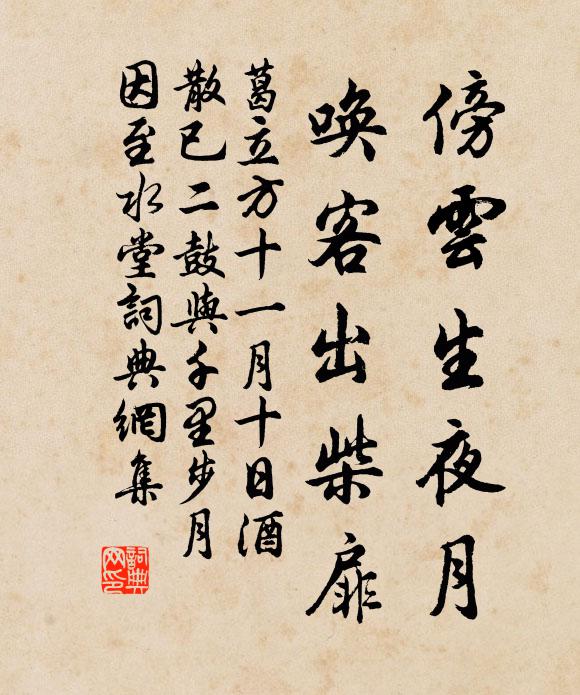 傍雲生夜月
喚客出柴扉
葛立方十一月十日酒
散已二鼓與千里步月
因至水堂詞典網集
詞典网印